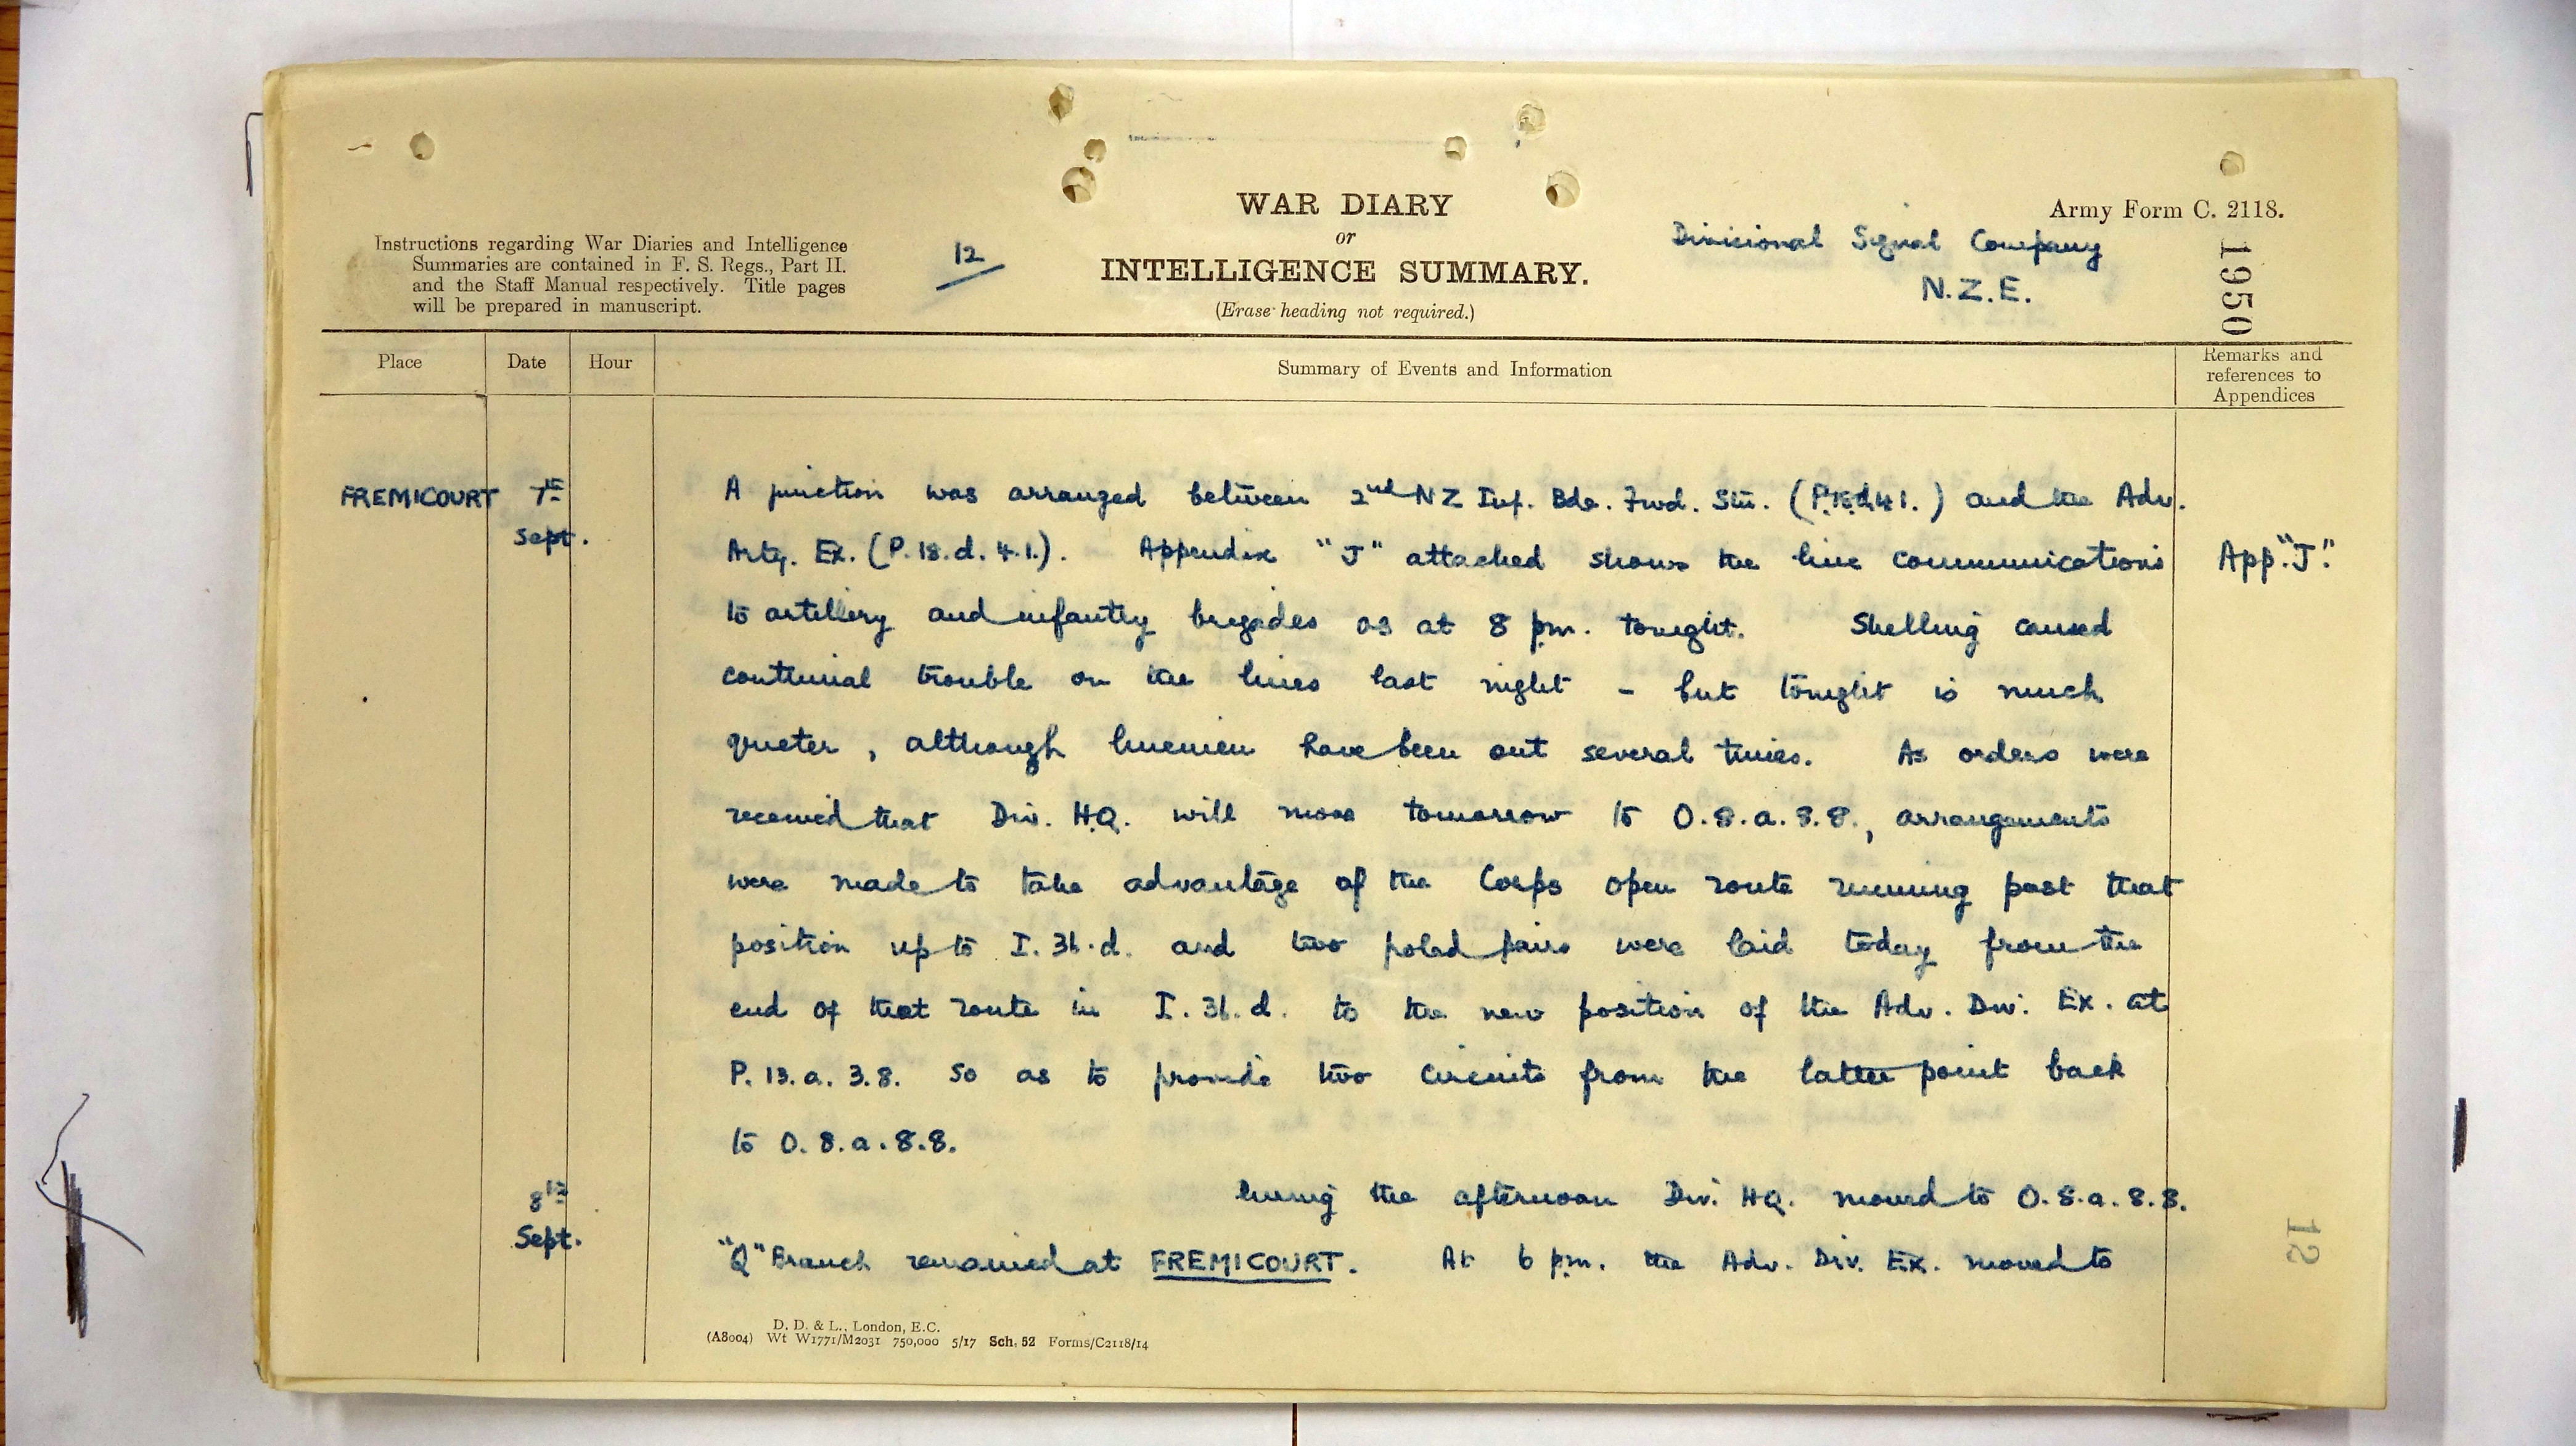 WAR DIARY
or
INTELLIGENCE SUMMARY.
(Erase heading not required.)
Army Form C. 2118.
Instructions regarding War Diaries and Intelligence
Summaries are contained in F. S. Regs., Part II.
and the Staff Manual respectively. Title pages
will be prepared in manuscript.
12
Divisional Signal Company
N.Z.E.
1950
Place Date Hour Summary of Events and Information Remarks and references to Appendices
FREMICOURT 7th Sept.
A junction was arranged between 2nd NZ Inf. Bde. Fwd. Stn. ( ) and the Adv.
Arty. Ex. (P.18.d.4.1.). Appendix "J" attached shows the line communications App. "J".
to artillery and infantry brigades as at 8 pm. tonight. Shelling caused
continual trouble on the lines last night - but tonight is much
quieter, although linemen have been out several times. As orders were
received that Div. H.Q. will move tomorrow to O.8.a.8.8., arrangements
were made to take advantage of the Corps open route running past that
position up to I.31.d. and two poled pairs were laid today from the
end of that route in I.31.d. to the new position of the Adv. Div. Ex. at
P.13.a.3.8. so as to provide two circuits from the latter point back
to O.8.a.8.8.
8th Sept.
During the afternoon Div. HQ. moved to O.8.a.8.8.
"Q" Branch remained at FREMICOURT. At 6 pm. the Adv. Div. Ex. moved to
D. D. & L., London, E.C.
(A8004) Wt W1771/M2031 750,000 5/17 Sch. 52 Forms/C2118/14
12